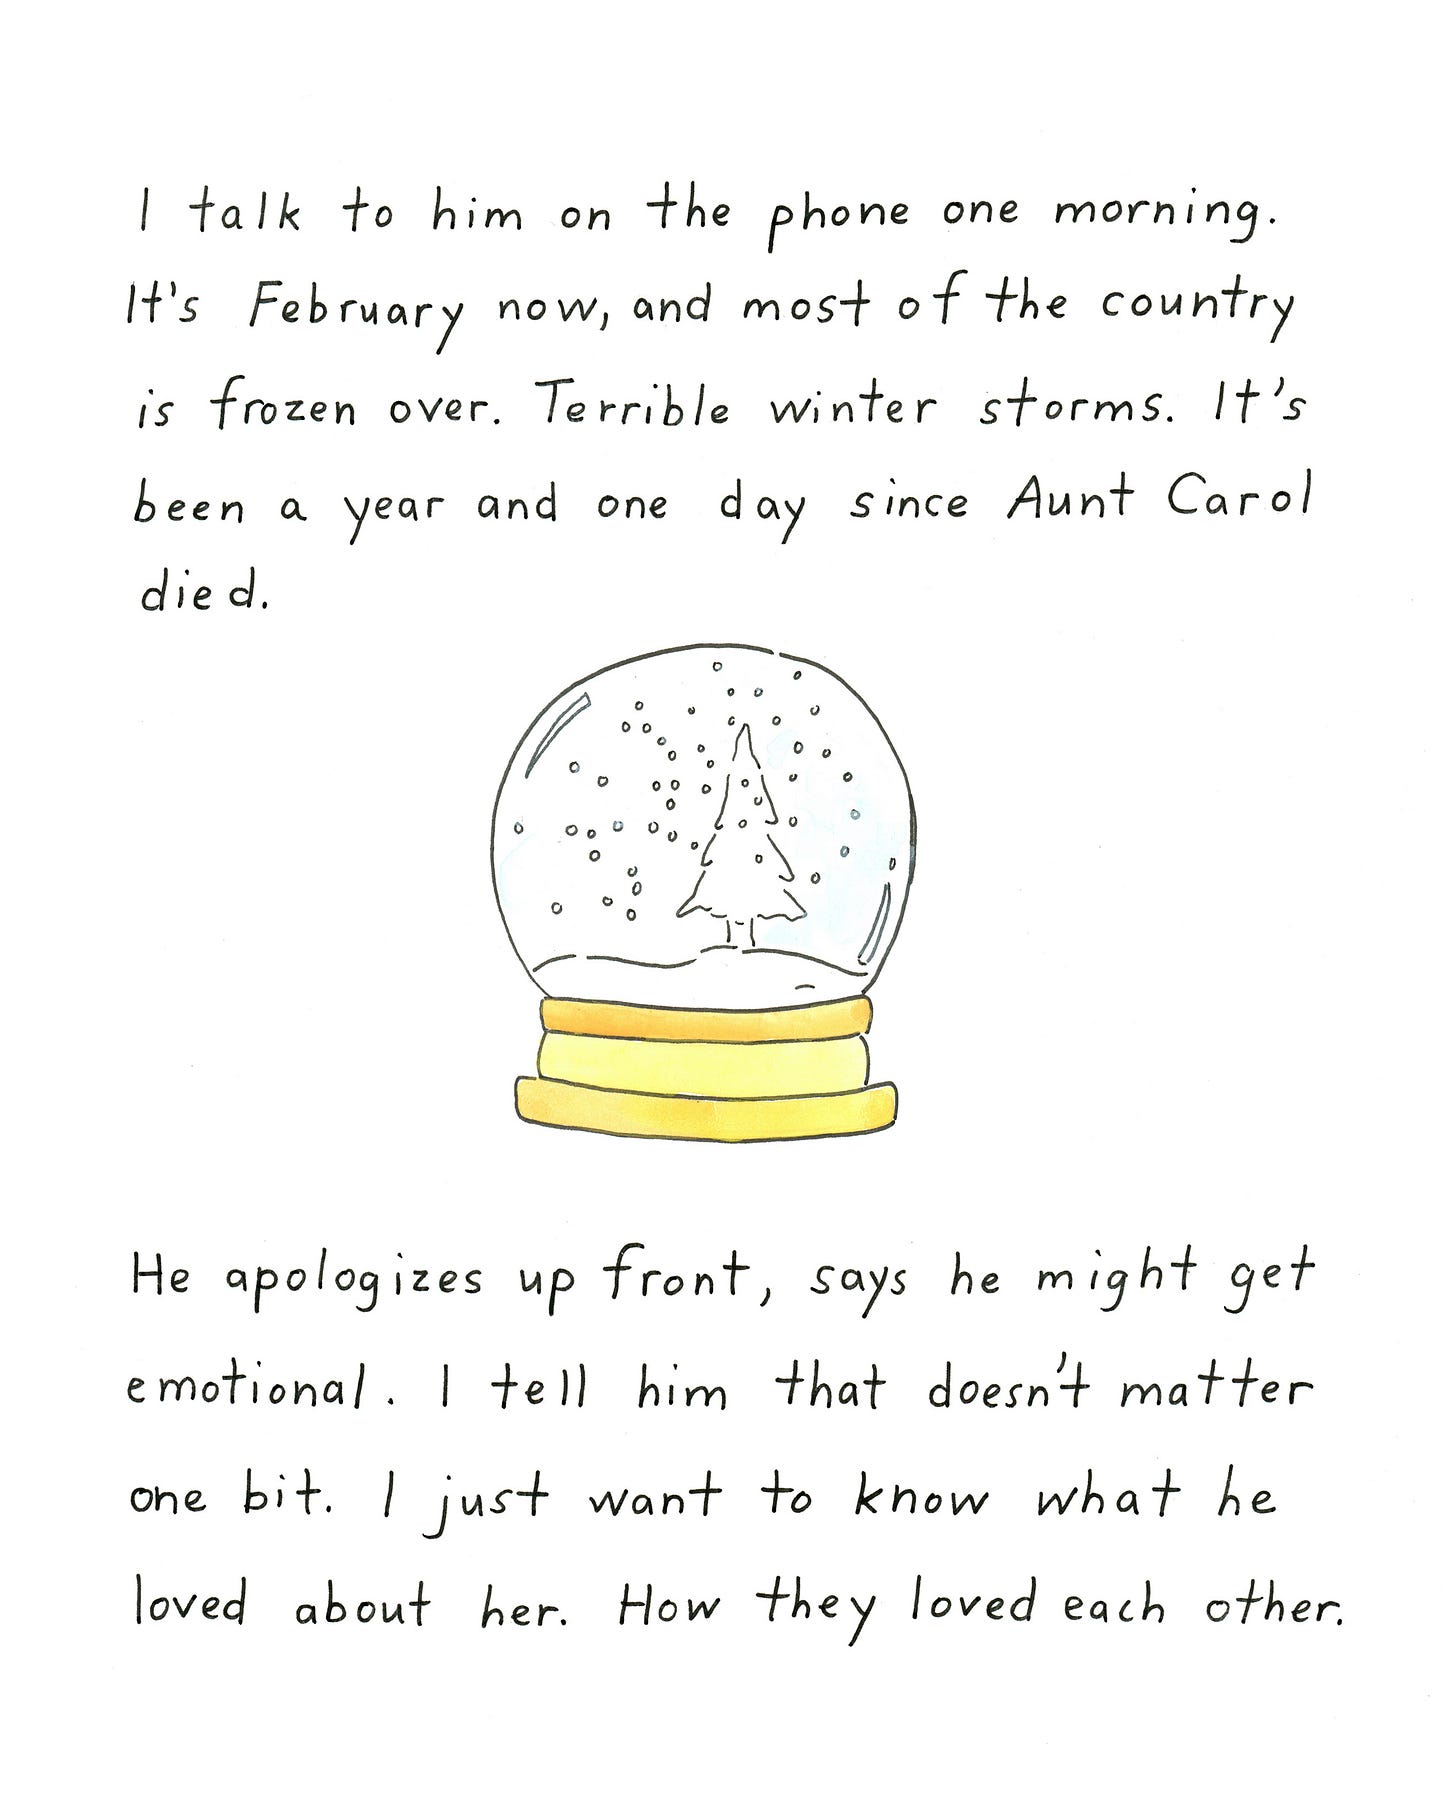 I talk to him on the phone one morning.
It's February now, and most of the country
is frozen over. Terrible winter storms. It's
been a year and one day since Aunt Carol
died.
He apologizes up front, says he might get
emotional. I tell him that doesn't matter
one bit. I just want to know what he
loved about her. How they loved each other.